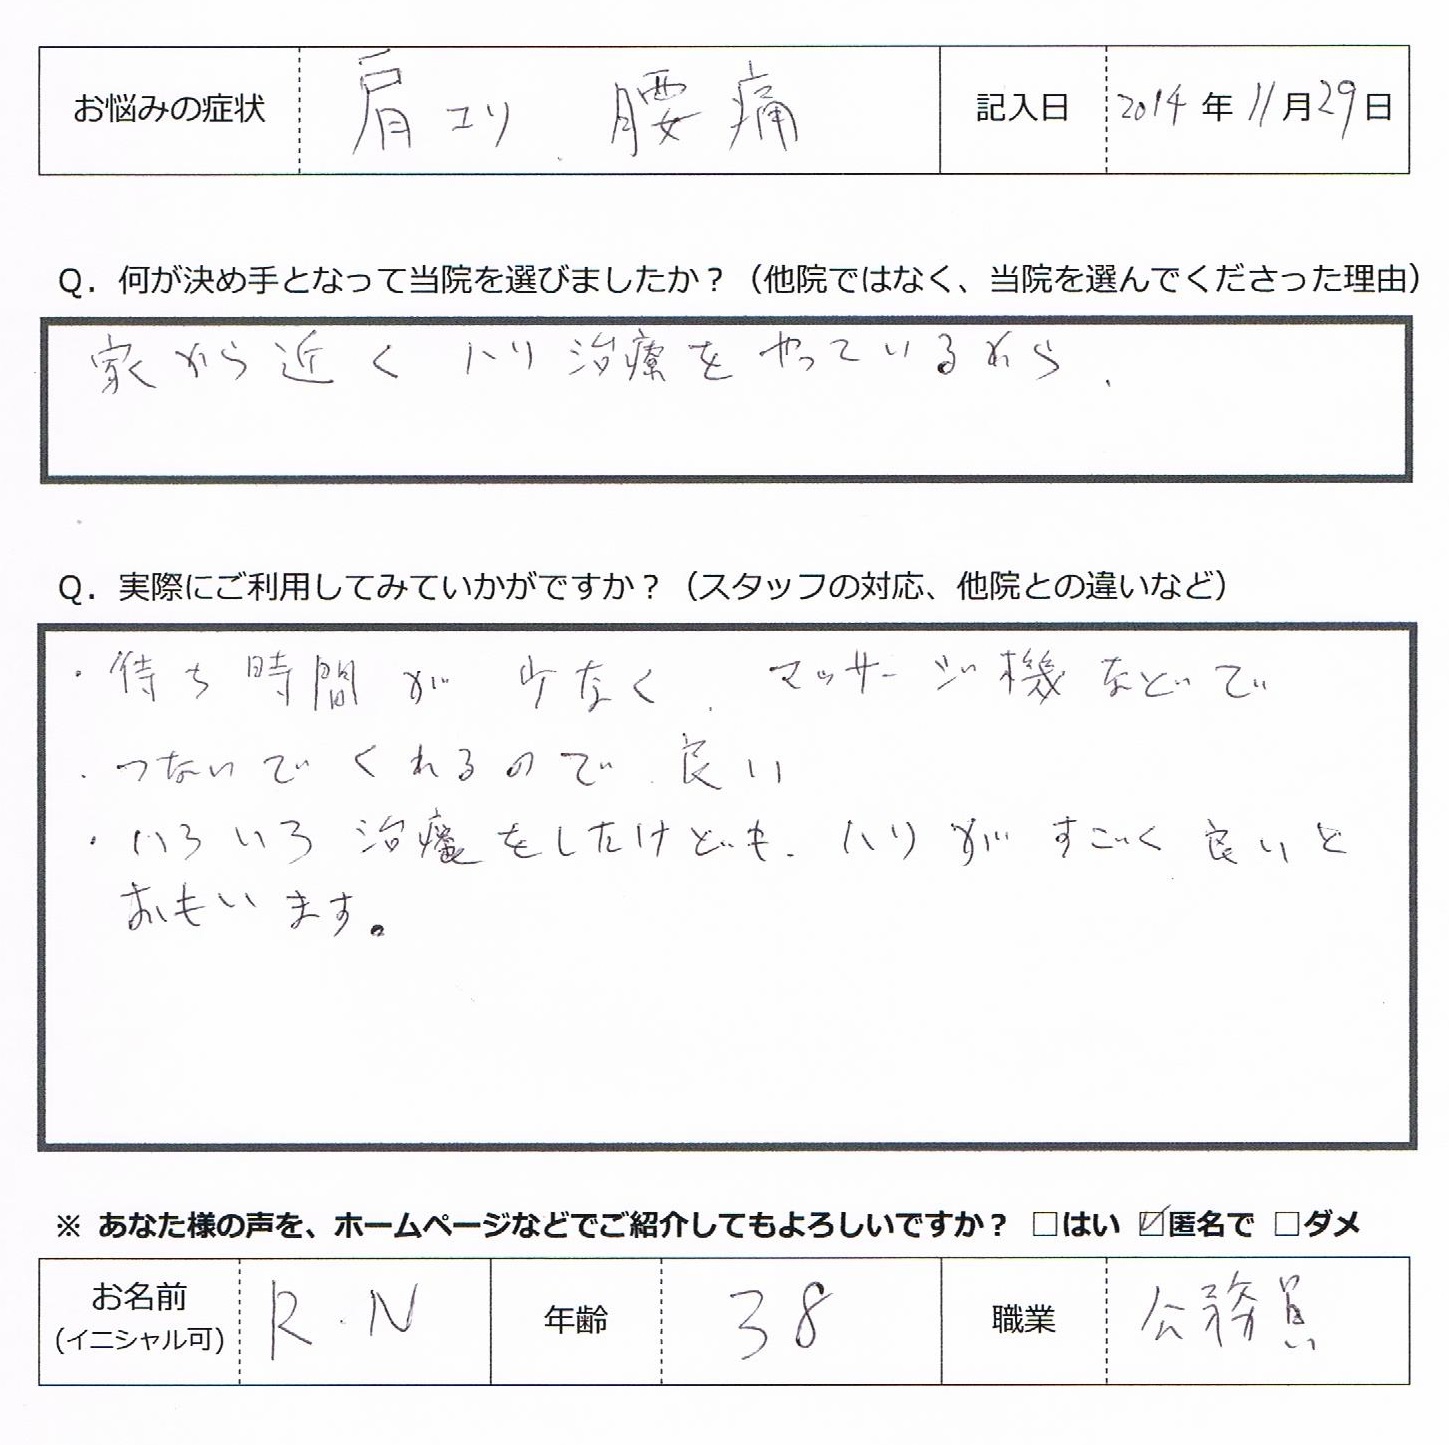 お悩みの症状 肩コリ、腰痛 記入日 2014年11月29日
Q. 何が決め手となって当院を選びましたか？（他院ではなく、当院を選んでくださった理由）
家から近くハリ治療をやっているから、
Q. 実際にご利用してみていかがですか？（スタッフの対応、他院との違いなど）
・待ち時間が少なく、マッサージ機などで
・つないでくれるので、良い
・いろいろ治療をしたけども、ハリがすごく良いと
おもいます。
※ あなた様の声を、ホームページなどでご紹介してもよろしいですか？ □はい ☑匿名で □ダメ
お名前 R.N 年齢 38 職業 公務員
(イニシャル可)